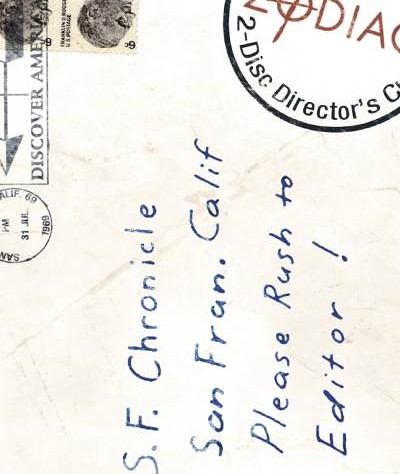 ZODIAC
2-Disc Director's C
FRANKLIN D. ROOSEV
U.S. POSTAGE
6¢
6¢
DISCOVER AMERICA
CALIF. 69
PM
31 JUL
1969
SAN
S.F. Chronicle
San Fran. Calif
Please Rush to
Editor !